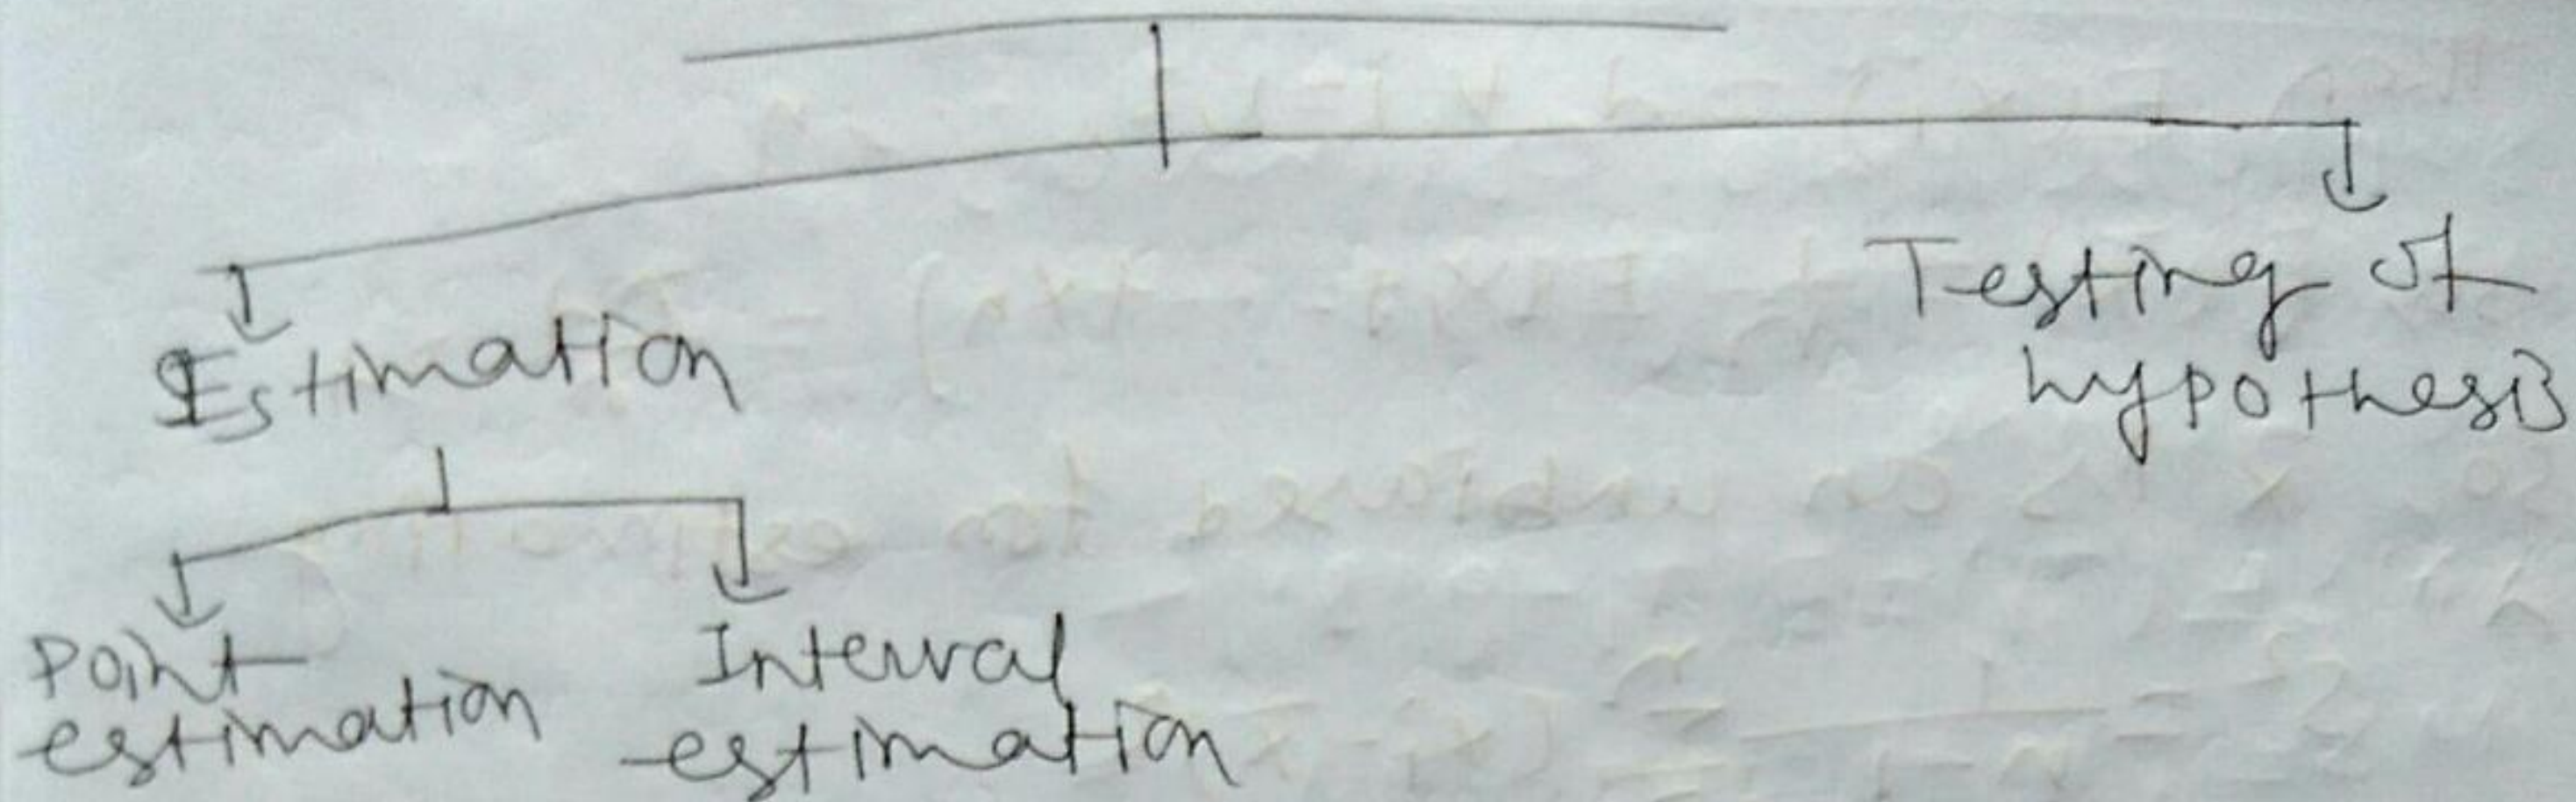 Estimation
Testing of
hypothesis
Point
estimation
Interval
estimation